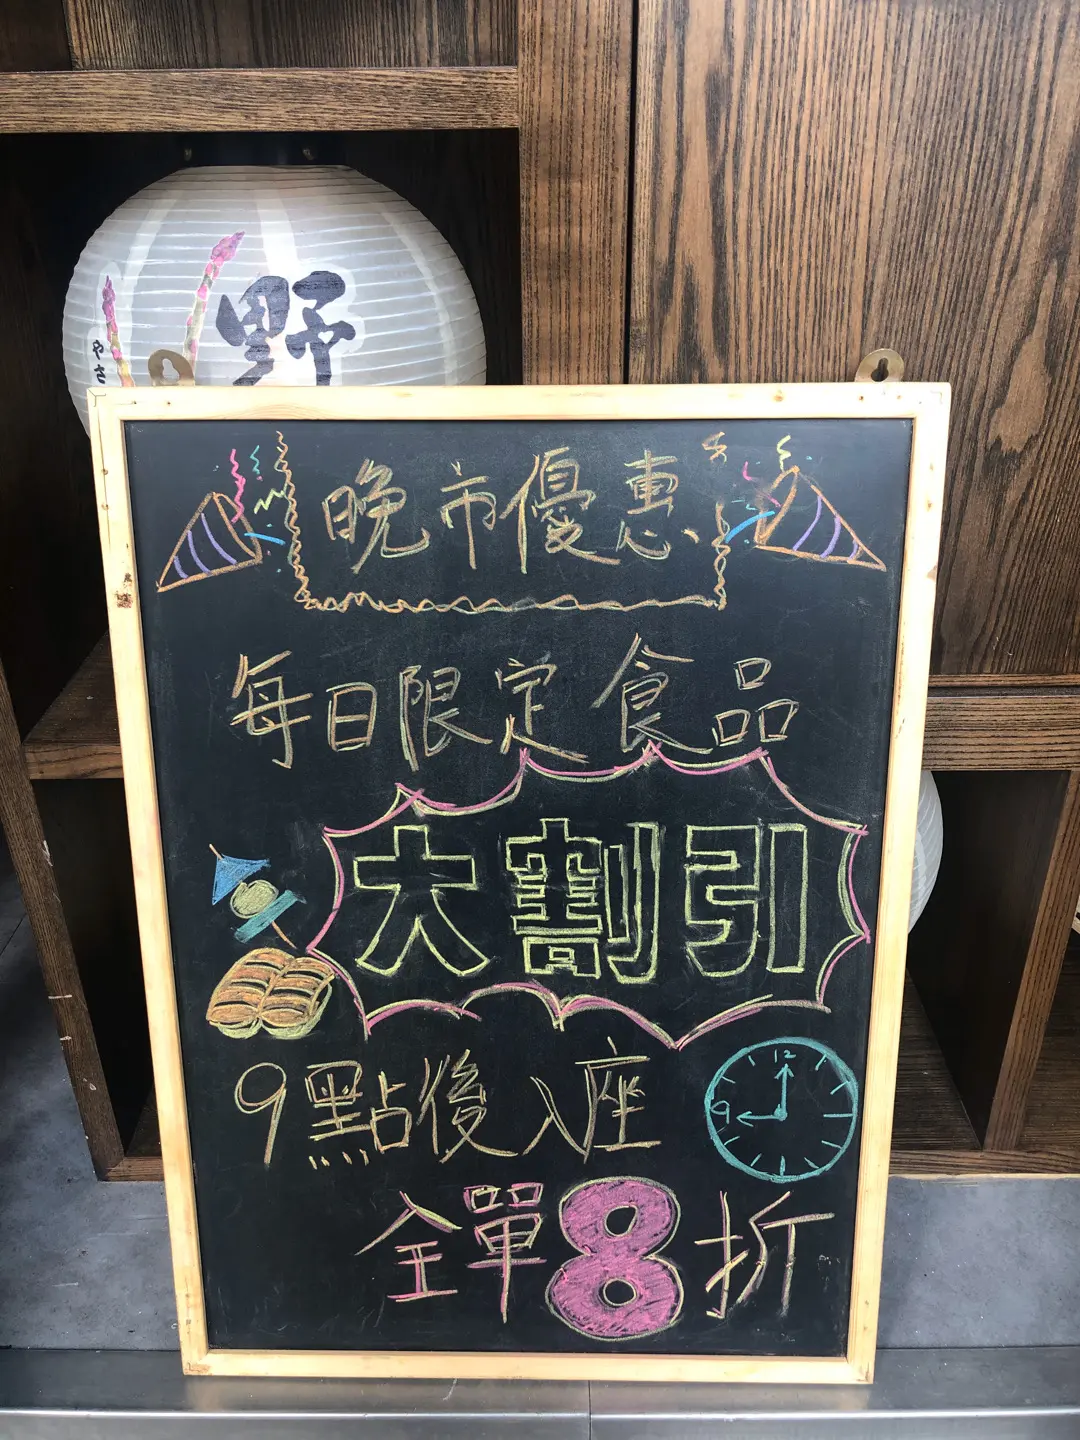 野
やさ
晚市優惠
每日限定食品
大割引
9點後入座
12
9
全單8折